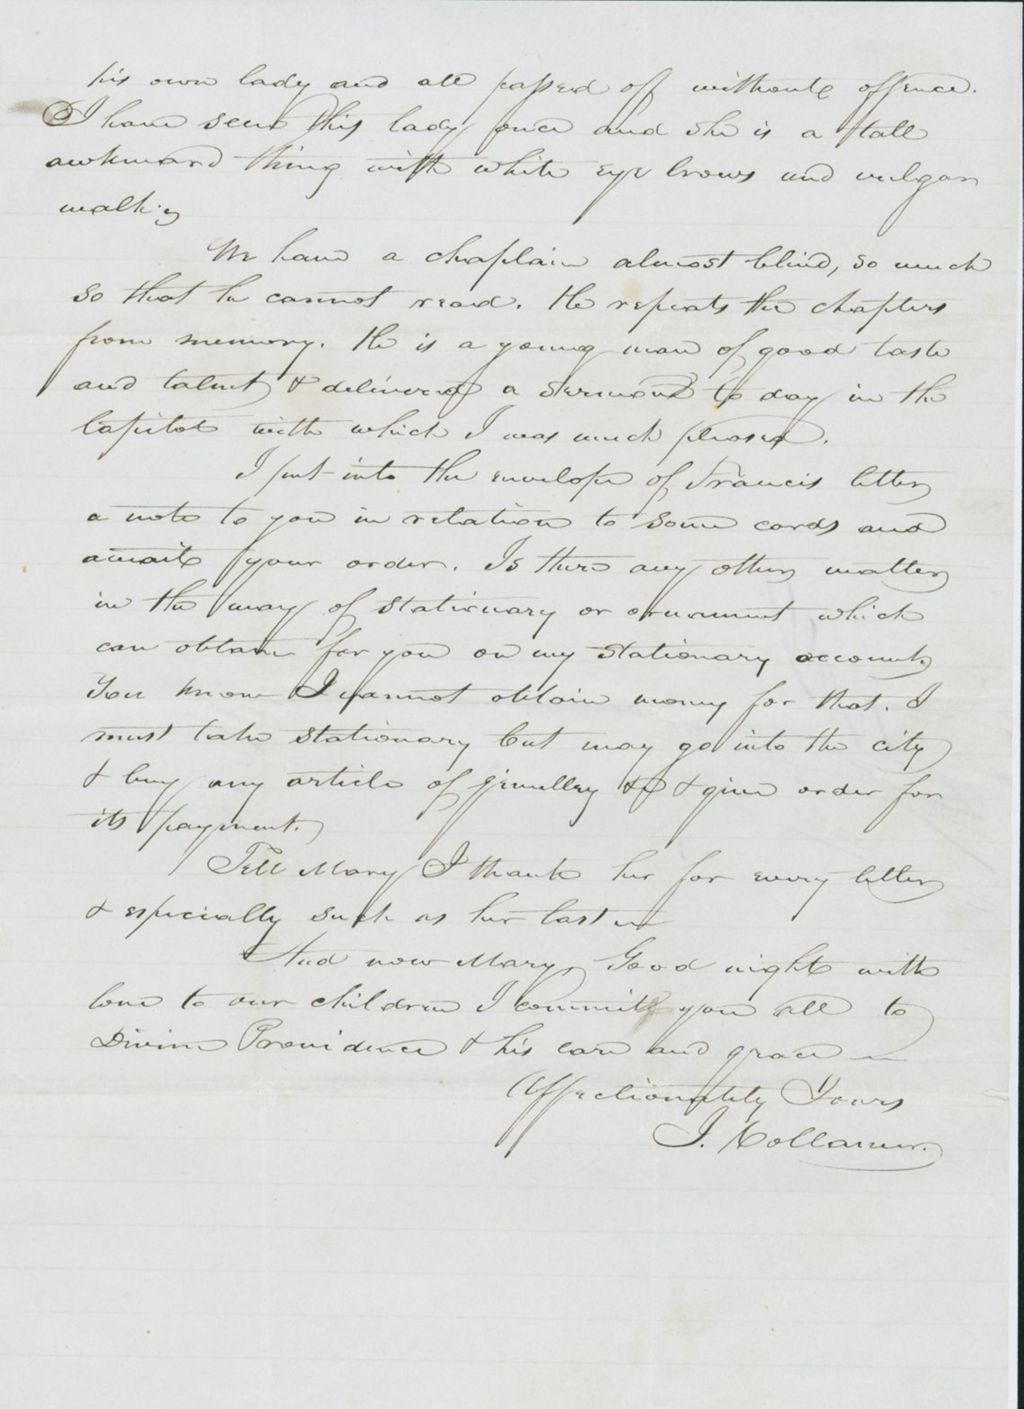 his own lady and all passed off without offence.
I have seen this lady once and she is a tall
awkward thing with white eye brows and vulgar
walk.
We have a chaplain almost blind, so much
so that he cannot read. He repeats the chapters
from memory. He is a young man of good taste
and talent & delivered a sermon to day in the
Capitol with which I was much pleased.
I put into the envelope of Francis letter
a note to you in relation to some cards and
await your order. Is there any other matter
in the way of stationary or ornament which
can obtain for you on my stationary account.
You know I cannot obtain money for that. I
must take stationary but may go into the city
& buy any article of jewellry &c & give order for
its payment.
Tell Mary I thank her for every letter
& especially such as her last
And now Mary, Good night with
love to our children I commit you all to
Divine Providence & his care and grace
Affectionately Yours
J. Collamer.